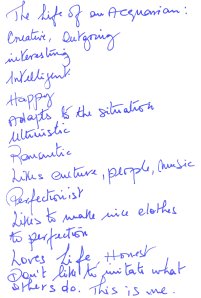 The life of an Acquarian:
Creative, Outgoing
interesting
Intelligent
Happy
Adapts to the situation
Ultruistic
Romantic
Likes culture, people, music
Perfectionist
Likes to make nice clothes
to perfection
Loves life, Honest
Don't like to imitate what
others do. This is me.